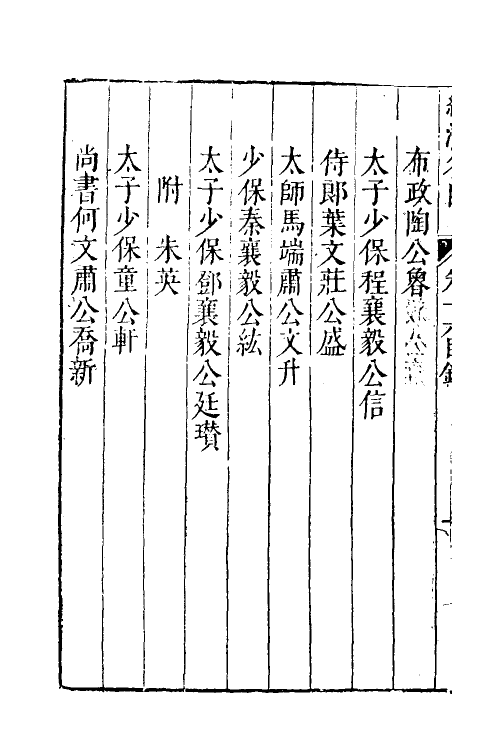 布政陶公魯
太子少保程襄毅公信
侍郎葉文莊公盛
太師馬端肅公文升
少保秦襄毅公紘
太子少保鄧襄毅公廷瓚
附 朱英
太子少保童公軒
尚書何文肅公喬新